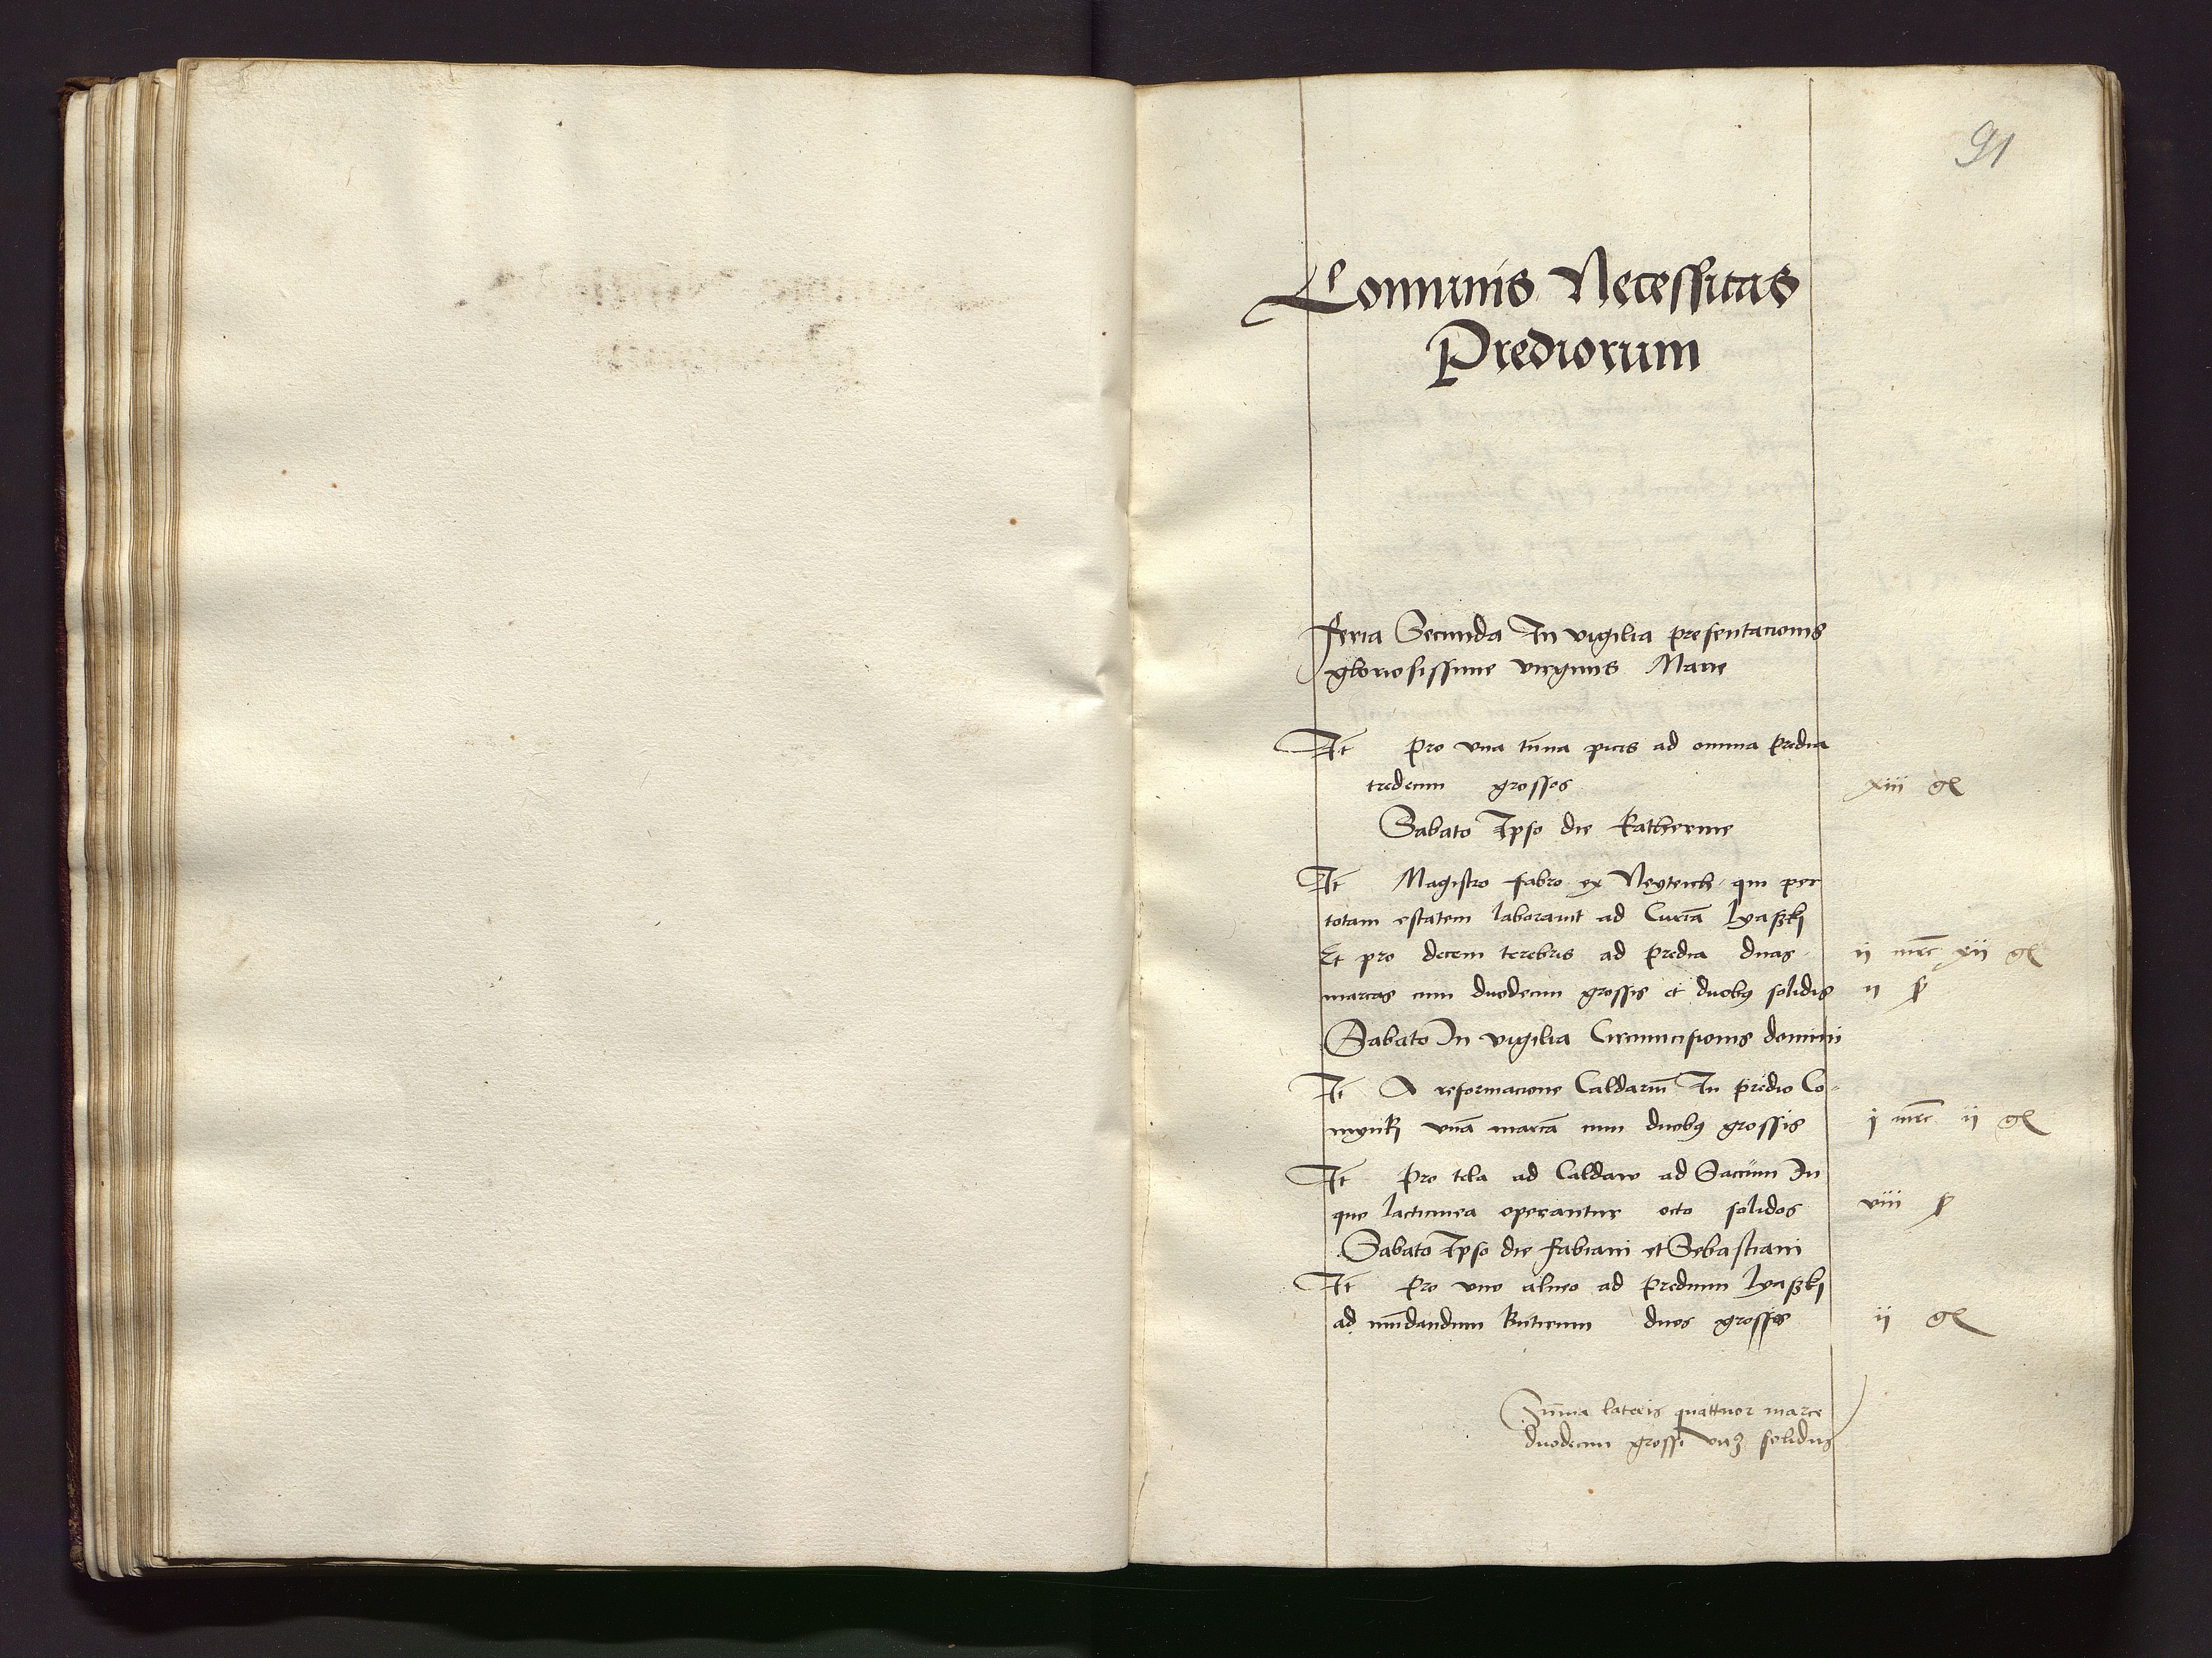 91
Comunis Necessitas
Prediorum
Feria Secunda In vigilia presentacionis
gloriosissime virginis Marie
It Pro vna tuna picis ad omnia predia
tredecim grossos xiii gl
Sabato Ipso die Katherine
It Magistro fabro ex Neyteich qui per
totam estatem laborauit ad Curia lyaszki
Et pro decem terebris ad predia duas ii mrc xii gl
marcas cum duodecim grossis et duobus solidis ii ß
Sabato In vigilia Circumcisionis domini
It A reformacione Caldariu In predio Co-
mynki vna marca cum duobus grossis i mrc ii gl
It Pro tela ad Caldaw ad Saccum In
quo lacticinea operantur octo solidos viii ß
Sabato Ipso die Fabiani et Sebastiani
It Pro vno alueo ad predium lyaszki
ad mudandum Butirum duos grossos ii gl
Suma lateris quattuor marce
duodecim grossi vnus solidus